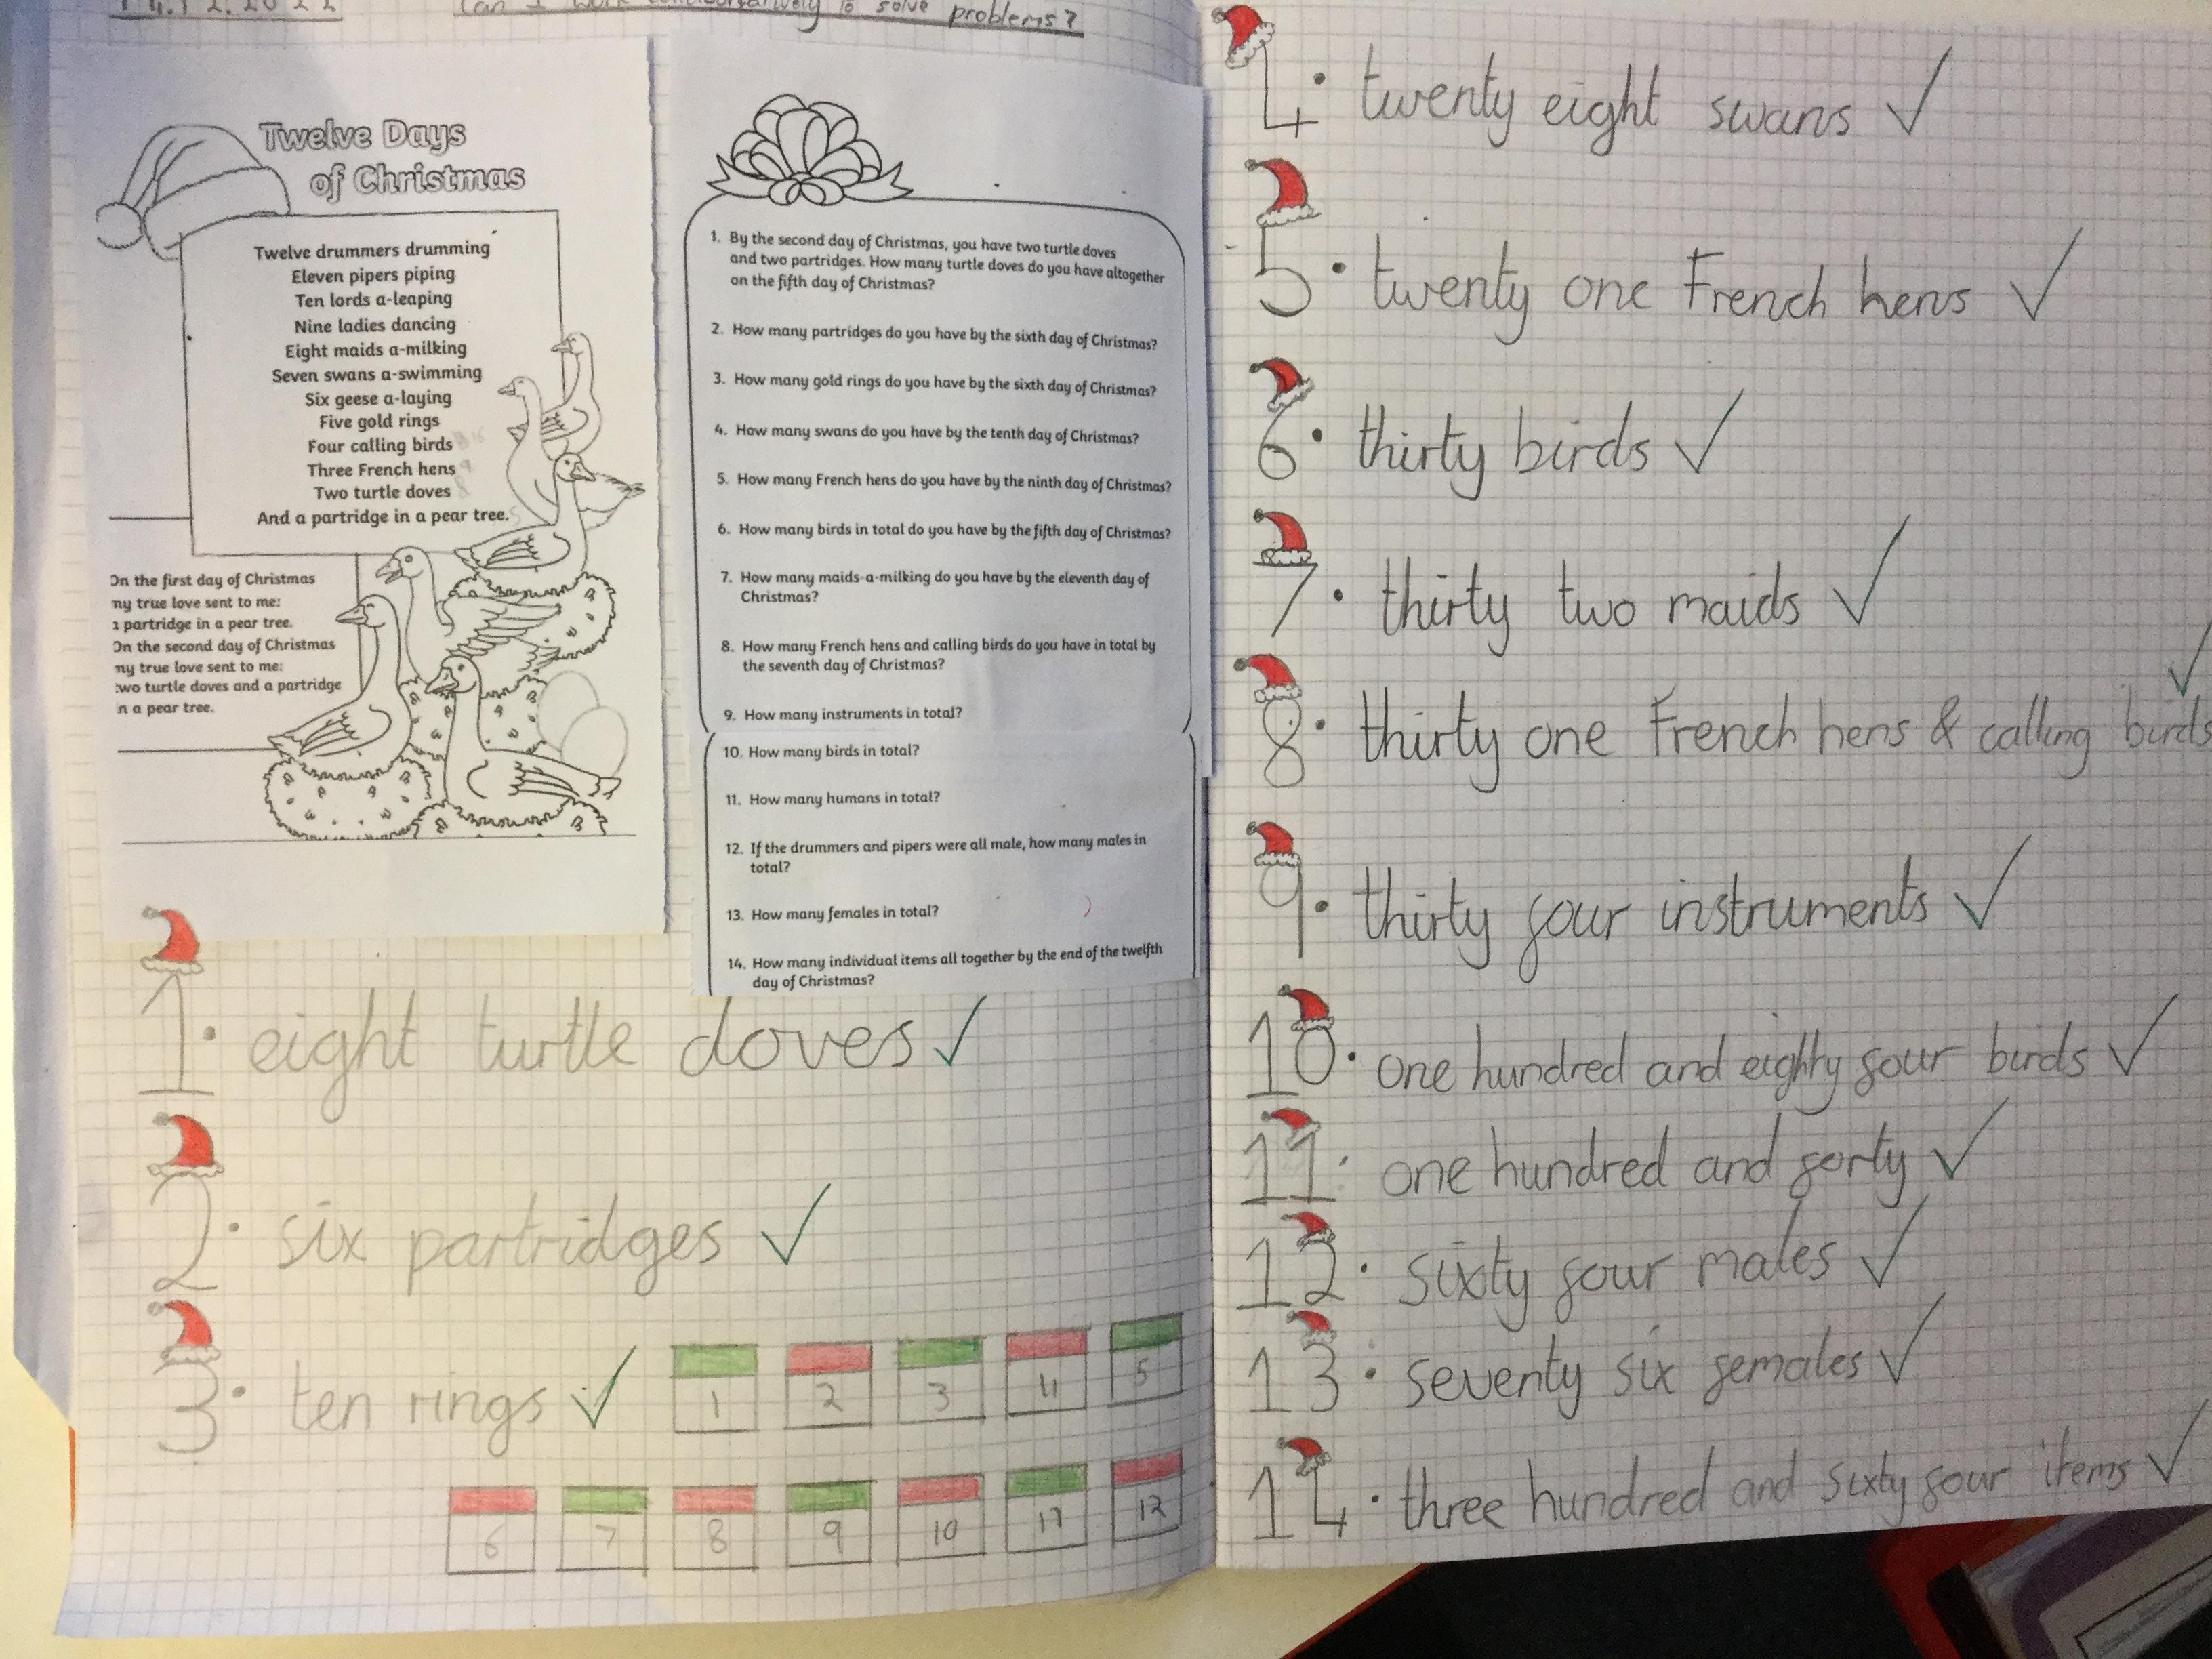 14.12.2022
Can I work collaboratively to solve problems?
Twelve Days
of Christmas
Twelve drummers drumming
Eleven pipers piping
Ten lords a-leaping
Nine ladies dancing
Eight maids a-milking
Seven swans a-swimming
Six geese a-laying
Five gold rings
Four calling birds
Three French hens
Two turtle doves
And a partridge in a pear tree.
On the first day of Christmas
my true love sent to me:
a partridge in a pear tree.
On the second day of Christmas
my true love sent to me:
two turtle doves and a partridge
in a pear tree.
1. By the second day of Christmas, you have two turtle doves
and two partridges. How many turtle doves do you have altogether
on the fifth day of Christmas?
2. How many partridges do you have by the sixth day of Christmas?
3. How many gold rings do you have by the sixth day of Christmas?
4. How many swans do you have by the tenth day of Christmas?
5. How many French hens do you have by the ninth day of Christmas?
6. How many birds in total do you have by the fifth day of Christmas?
7. How many maids-a-milking do you have by the eleventh day of
Christmas?
8. How many French hens and calling birds do you have in total by
the seventh day of Christmas?
9. How many instruments in total?
10. How many birds in total?
11. How many humans in total?
12. If the drummers and pipers were all male, how many males in
total?
13. How many females in total?
14. How many individual items all together by the end of the twelfth
day of Christmas?
1. eight turtle doves
2. six partridges
3. ten rings
1 2 3 4 5
6 7 8 9 10 11 12
4. twenty eight swans
5. twenty one French hens
6. thirty birds
7. thirty two maids
8. thirty one French hens & calling birds
9. thirty four instruments
10. one hundred and eighty four birds
11. one hundred and forty
12. sixty four males
13. seventy six females
14. three hundred and sixty four items